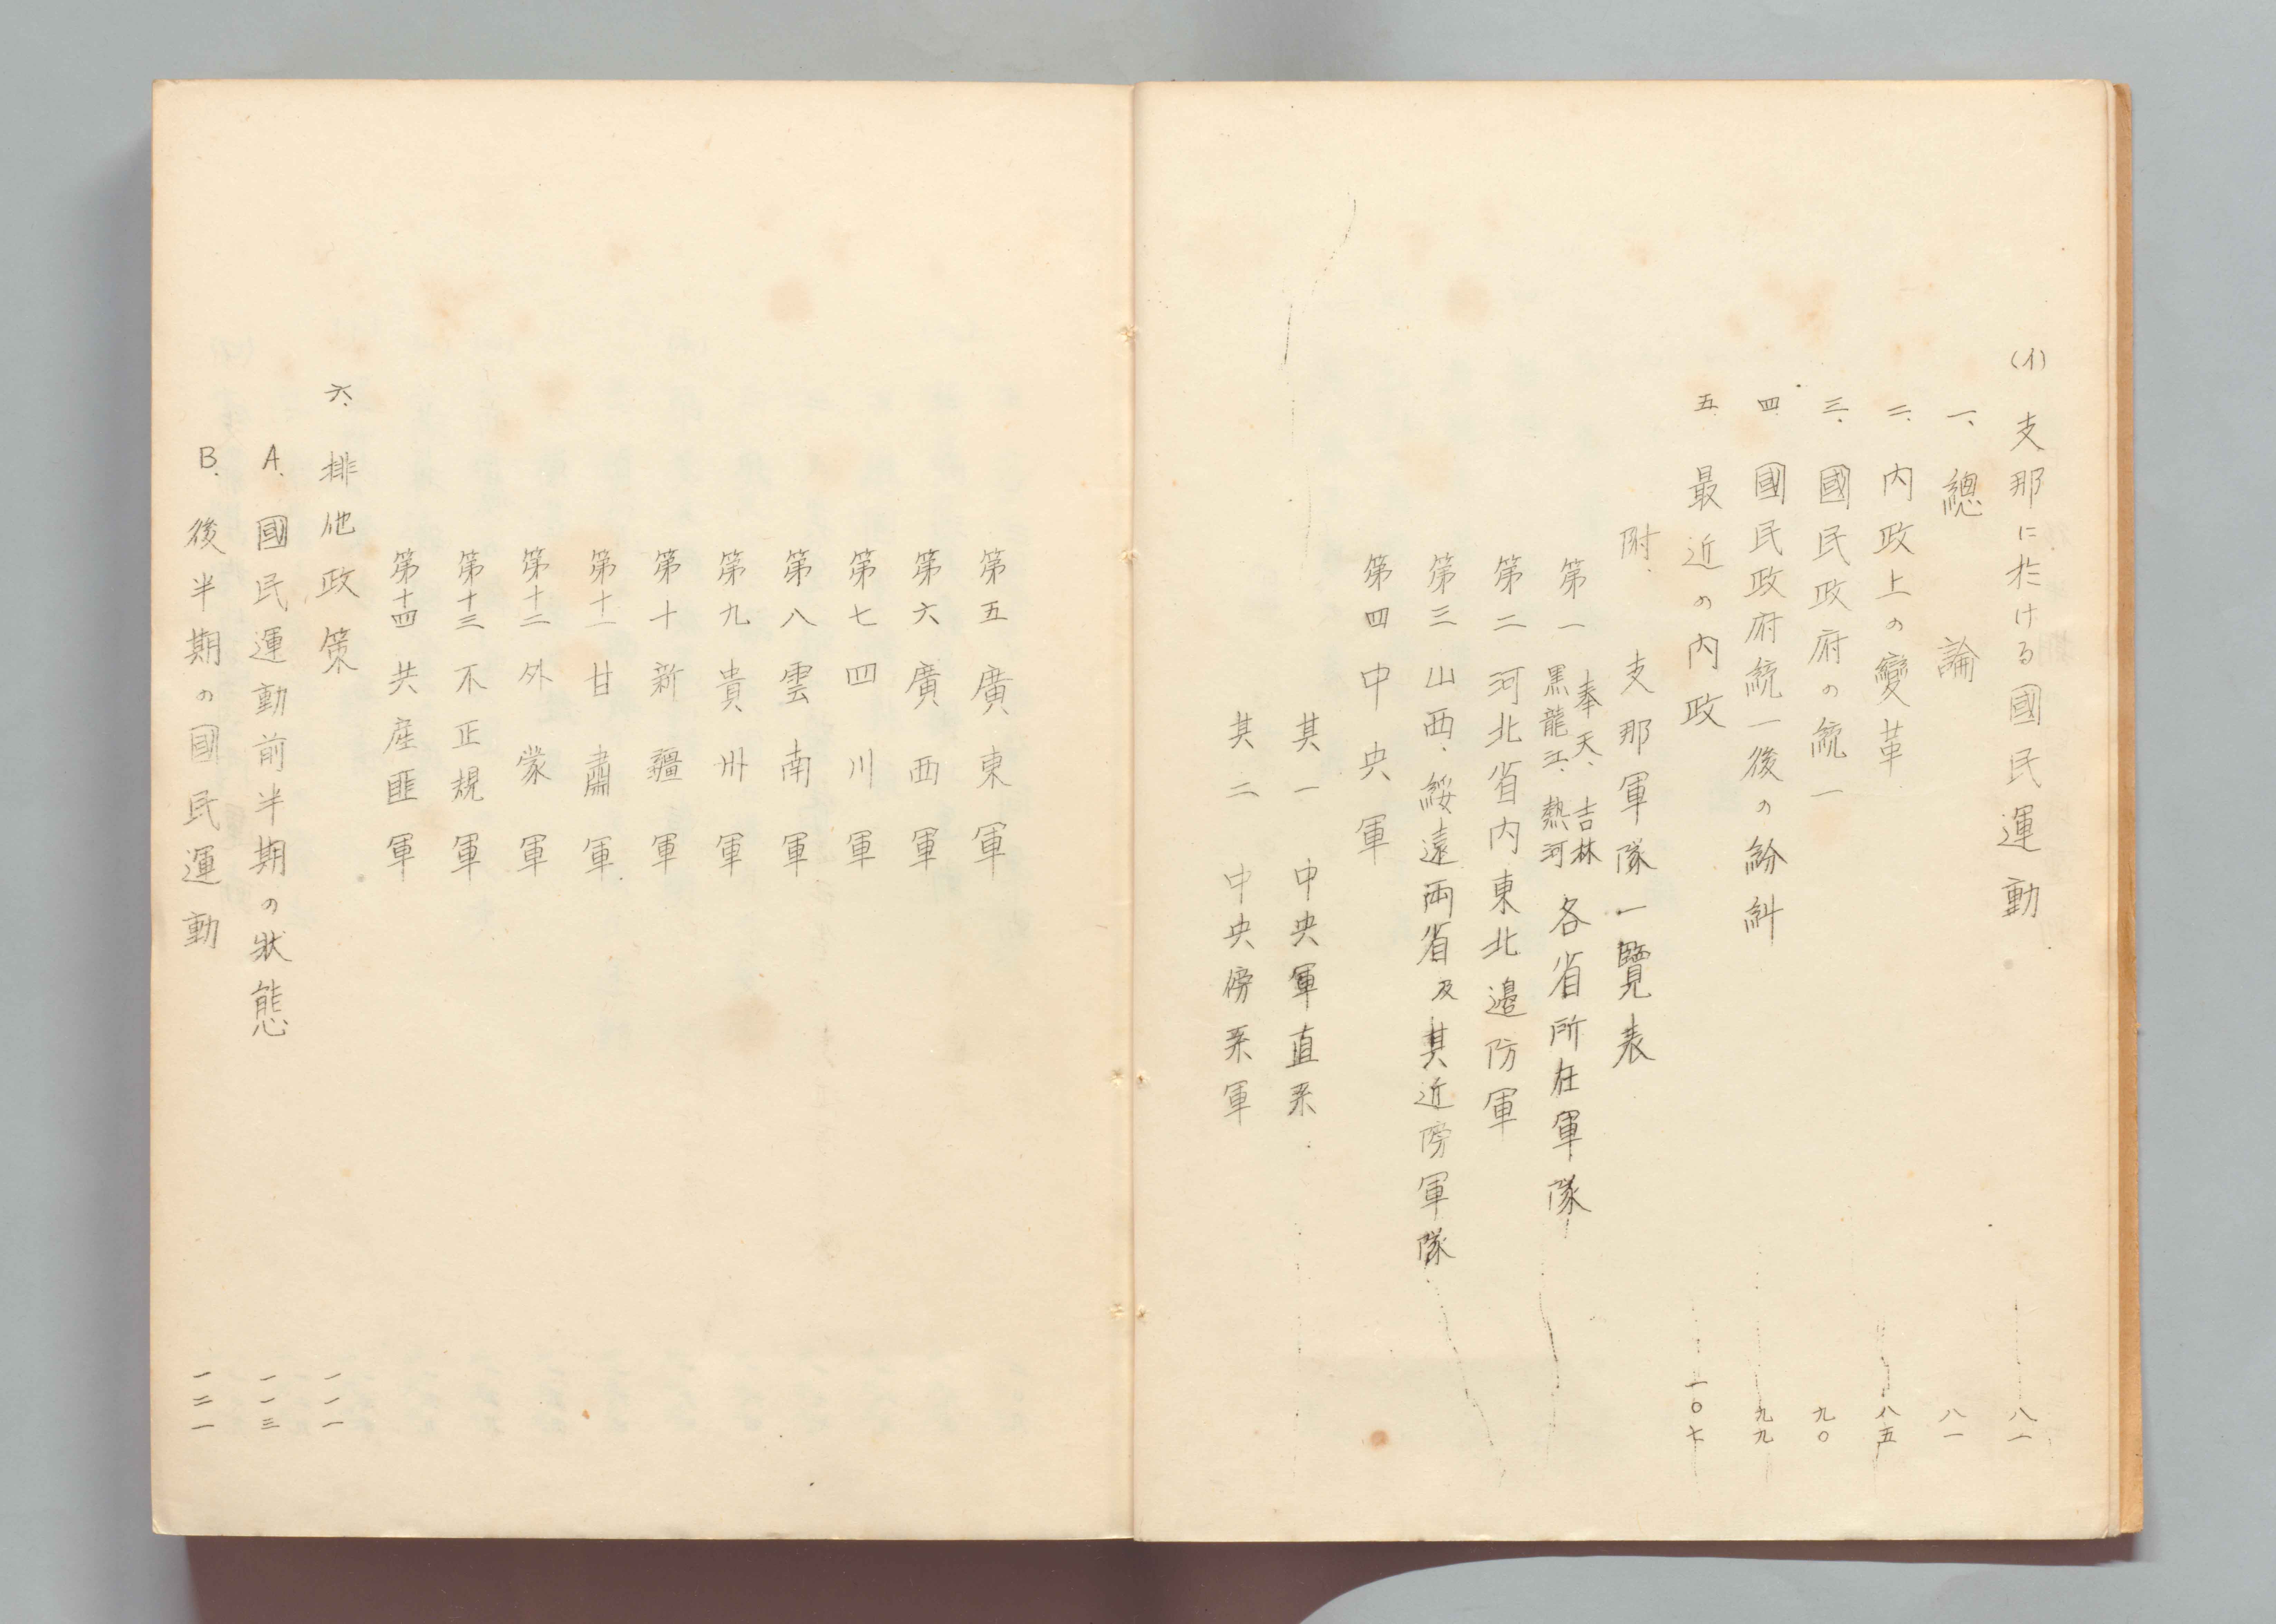 (イ) 支那に於ける國民運動 八一
一、總論 八一
二、內政上の變革 八五
三、國民政府の統一 九〇
四、國民政府統一後の紛糾 九九
五、最近の內政 一〇七
附、支那軍隊一覽表
第一 奉天、吉林 黑龍江、熱河 各省所在軍隊
第二 河北省內東北邊防軍
第三 山西、綏遠兩省及其近傍軍隊
第四 中央軍
其一 中央軍直系
其二 中央傍系軍
第五 廣東軍
第六 廣西軍
第七 四川軍
第八 雲南軍
第九 貴州軍
第十 新疆軍
第十一 甘肅軍
第十二 外蒙軍
第十三 不正規軍
第十四 共産匪軍
六、排他政策 一一一
A. 國民運動前半期の狀態 一一三
B. 後半期の國民運動 一二一